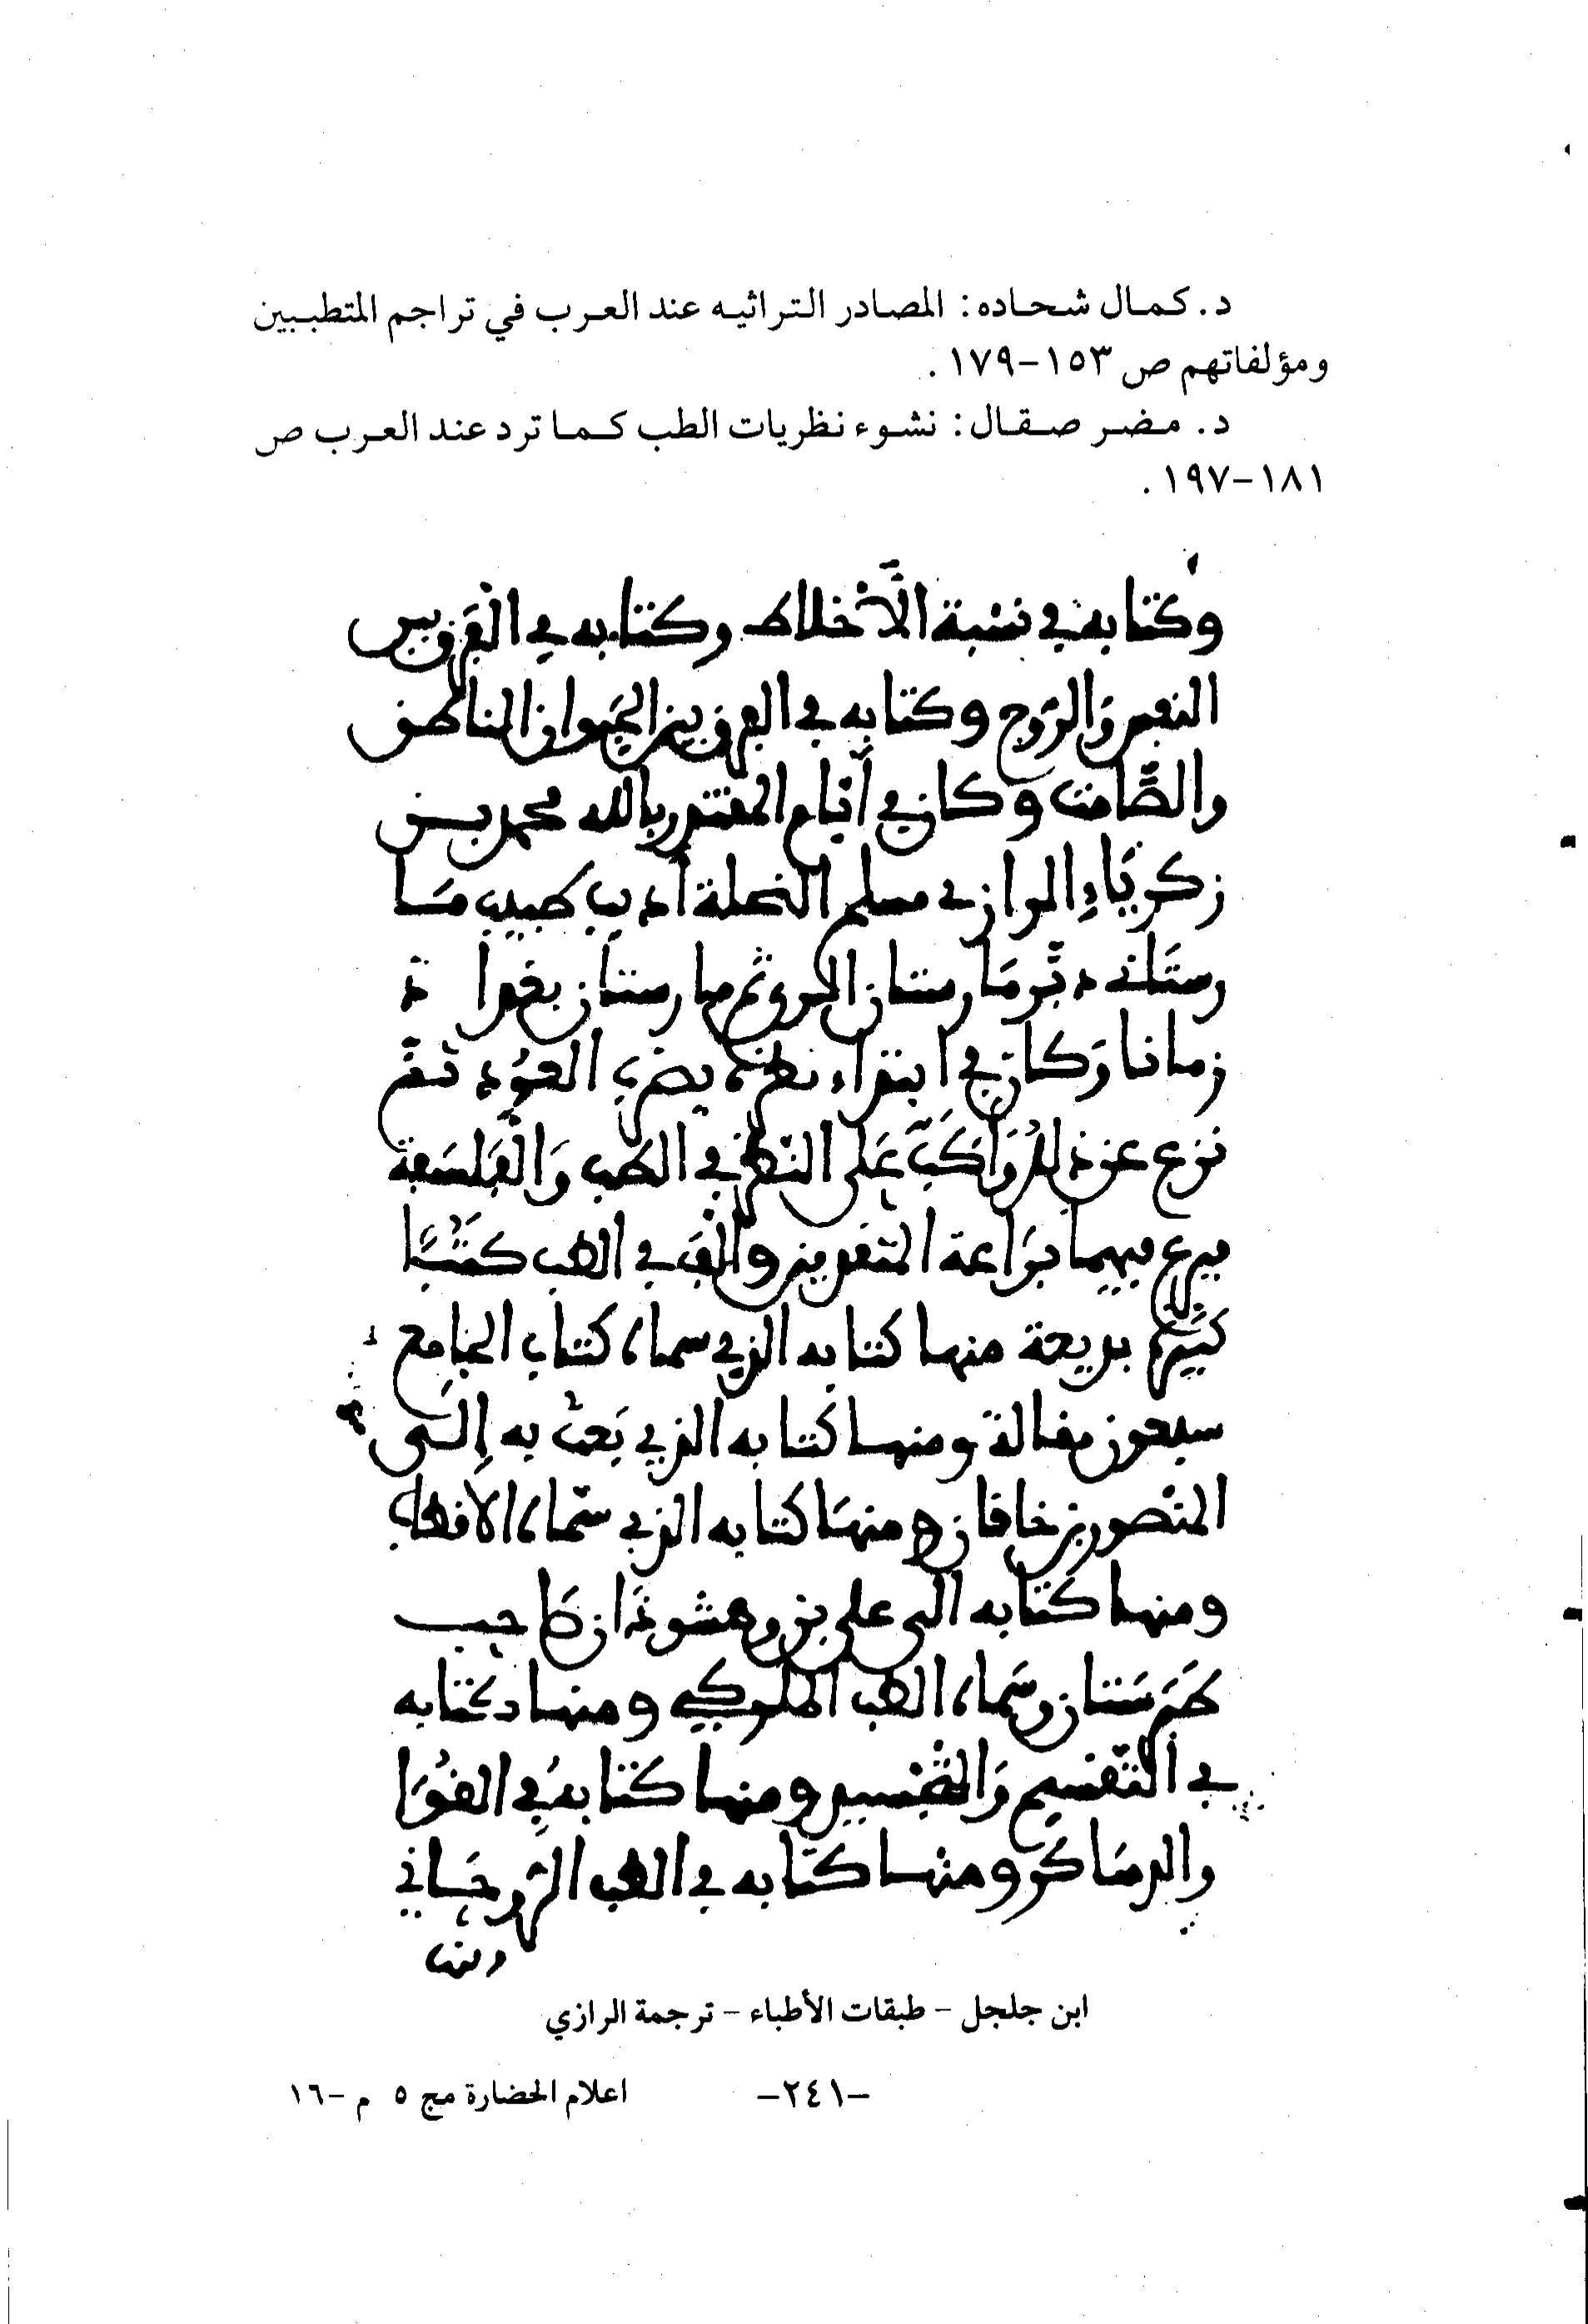 د. كمال شحاده: المصادر التراثيه عند العرب في تراجم المتطببين
ومؤلفاتهم ص ١٥٣-١٧٩.
د. مضر صقال: نشوء نظريات الطب كما ترد عند العرب ص
١٨١-١٩٧.
وكتابه في نسبة الأخلاط وكتابه في الفرق بين
النفس والروح وكتابه في الفرق بين الحيوان الناطق
والصَّامت وكان في أيّام المقتدر بالله محمد بن
زكريّاء الرازي مسلم النحلة أديب طبيب مَا
رستاني دبّر مَارستان الري ثم مارستان بغداد
زمانا وَكان في ابتداء نظره يضرب العُود ثمّ
نزع عن ذلك وَأكبّ عَلى النّظر في الطب وَالفلسَفة
فبرع فيهما بَرَاعة المتقدمين وألّف في الطب كتُبًا
كثيرة بديعة منها كتابه الذي سماه كتاب الجامع
سبعون مقالة ومنها كتابه الذي بَعث به إلى
المنصور بن خاقان ومنهَا كتابه الذي سمّاه الاقطاب
ومنها كتابه الى علي بن وهشوذان صاحب
طبرستان وسَماه الطب الملوكي ومنها كتابه
في التّقسيم وَالتشجير ومنها كتابه في القوَا
والدسَاكر ومنها كتابه في الطب الروحَاني
ابن جلجل - طبقات الأطباء - ترجمة الرازي
-٢٤١-
اعلام الحضارة مج ٥ م -١٦